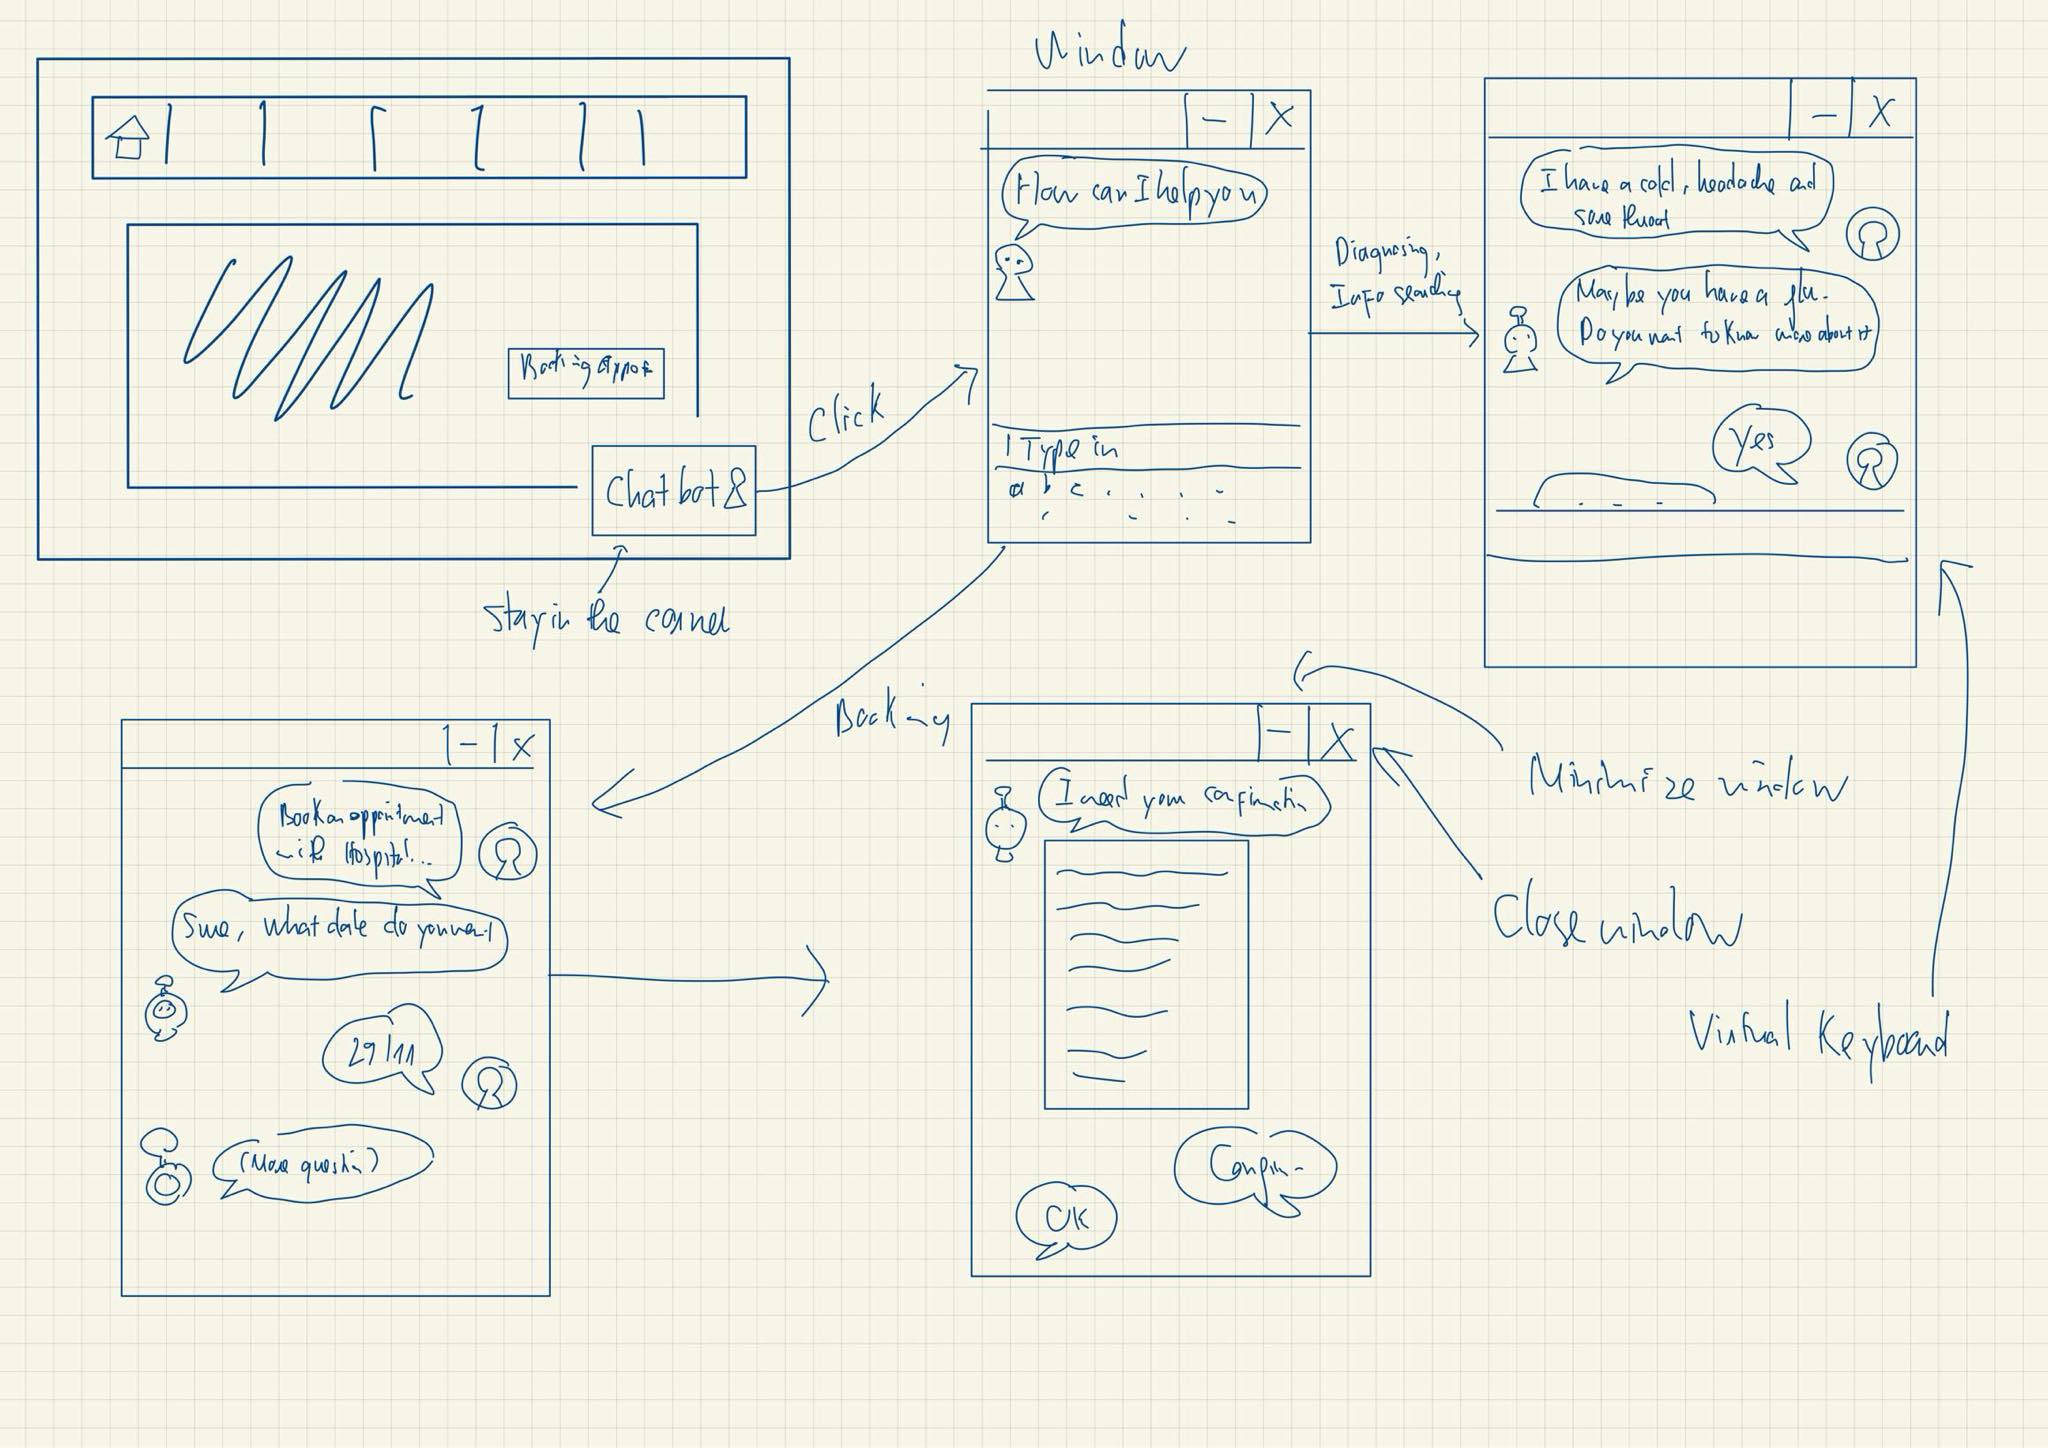 Window
- X
How can I help you
1 Type in
a b c
Booking
Chatbot
Click
Stay in the corner
Diagnosing,
Info searching
- X
I have a cold, headache and
sore throat
Maybe you have a flu.
Do you want to know more about it
Yes
Booking
- X
Book an appointment
with Hospital...
Sure, what date do you want
29/11
(More question)
- X
I need your confirmation
Confirm
OK
Minimize window
Close window
Virtual Keyboard